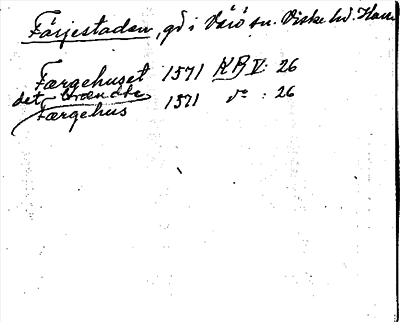 Färjestaden, gd i Värö sn. Viske hd. Hall
Færgehuset 1571 KB V: 26
det brændte
Færgehus 1571 do : 26